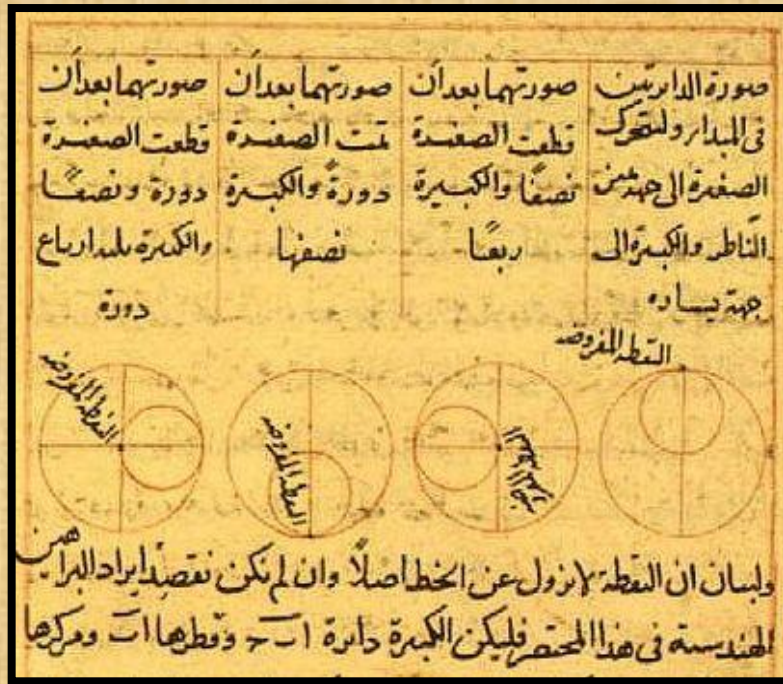 صورة الدايرتين
فى المبدا ولتتحرك
الصغيرة الى جهة يمين
الناظر والكبيرة الى
جهة يساره
صورتهما بعد ان
قطعت الصغيرة
نصفًا والكبيرة
ربعًا
صورتهما بعد ان
تمت الصغيرة
دورةً والكبيرة
نصفها
صورتهما بعد ان
قطعت الصغيرة
دورة ونصفًا
والكبيرة ثلثة ارباع
دورة
النقطة المفروضة
النقطة المفروضة
النقطة المفروضة
النقطة المفروضة
ولبيان ان النقطة لا تزول عن الخط اصلًا وان لم نكن نقصد ايراد البراهين
الهندسية فى هذا المختصر فليكن الكبيرة دايرة ا ب ج وقطرها ا ب ومركزها